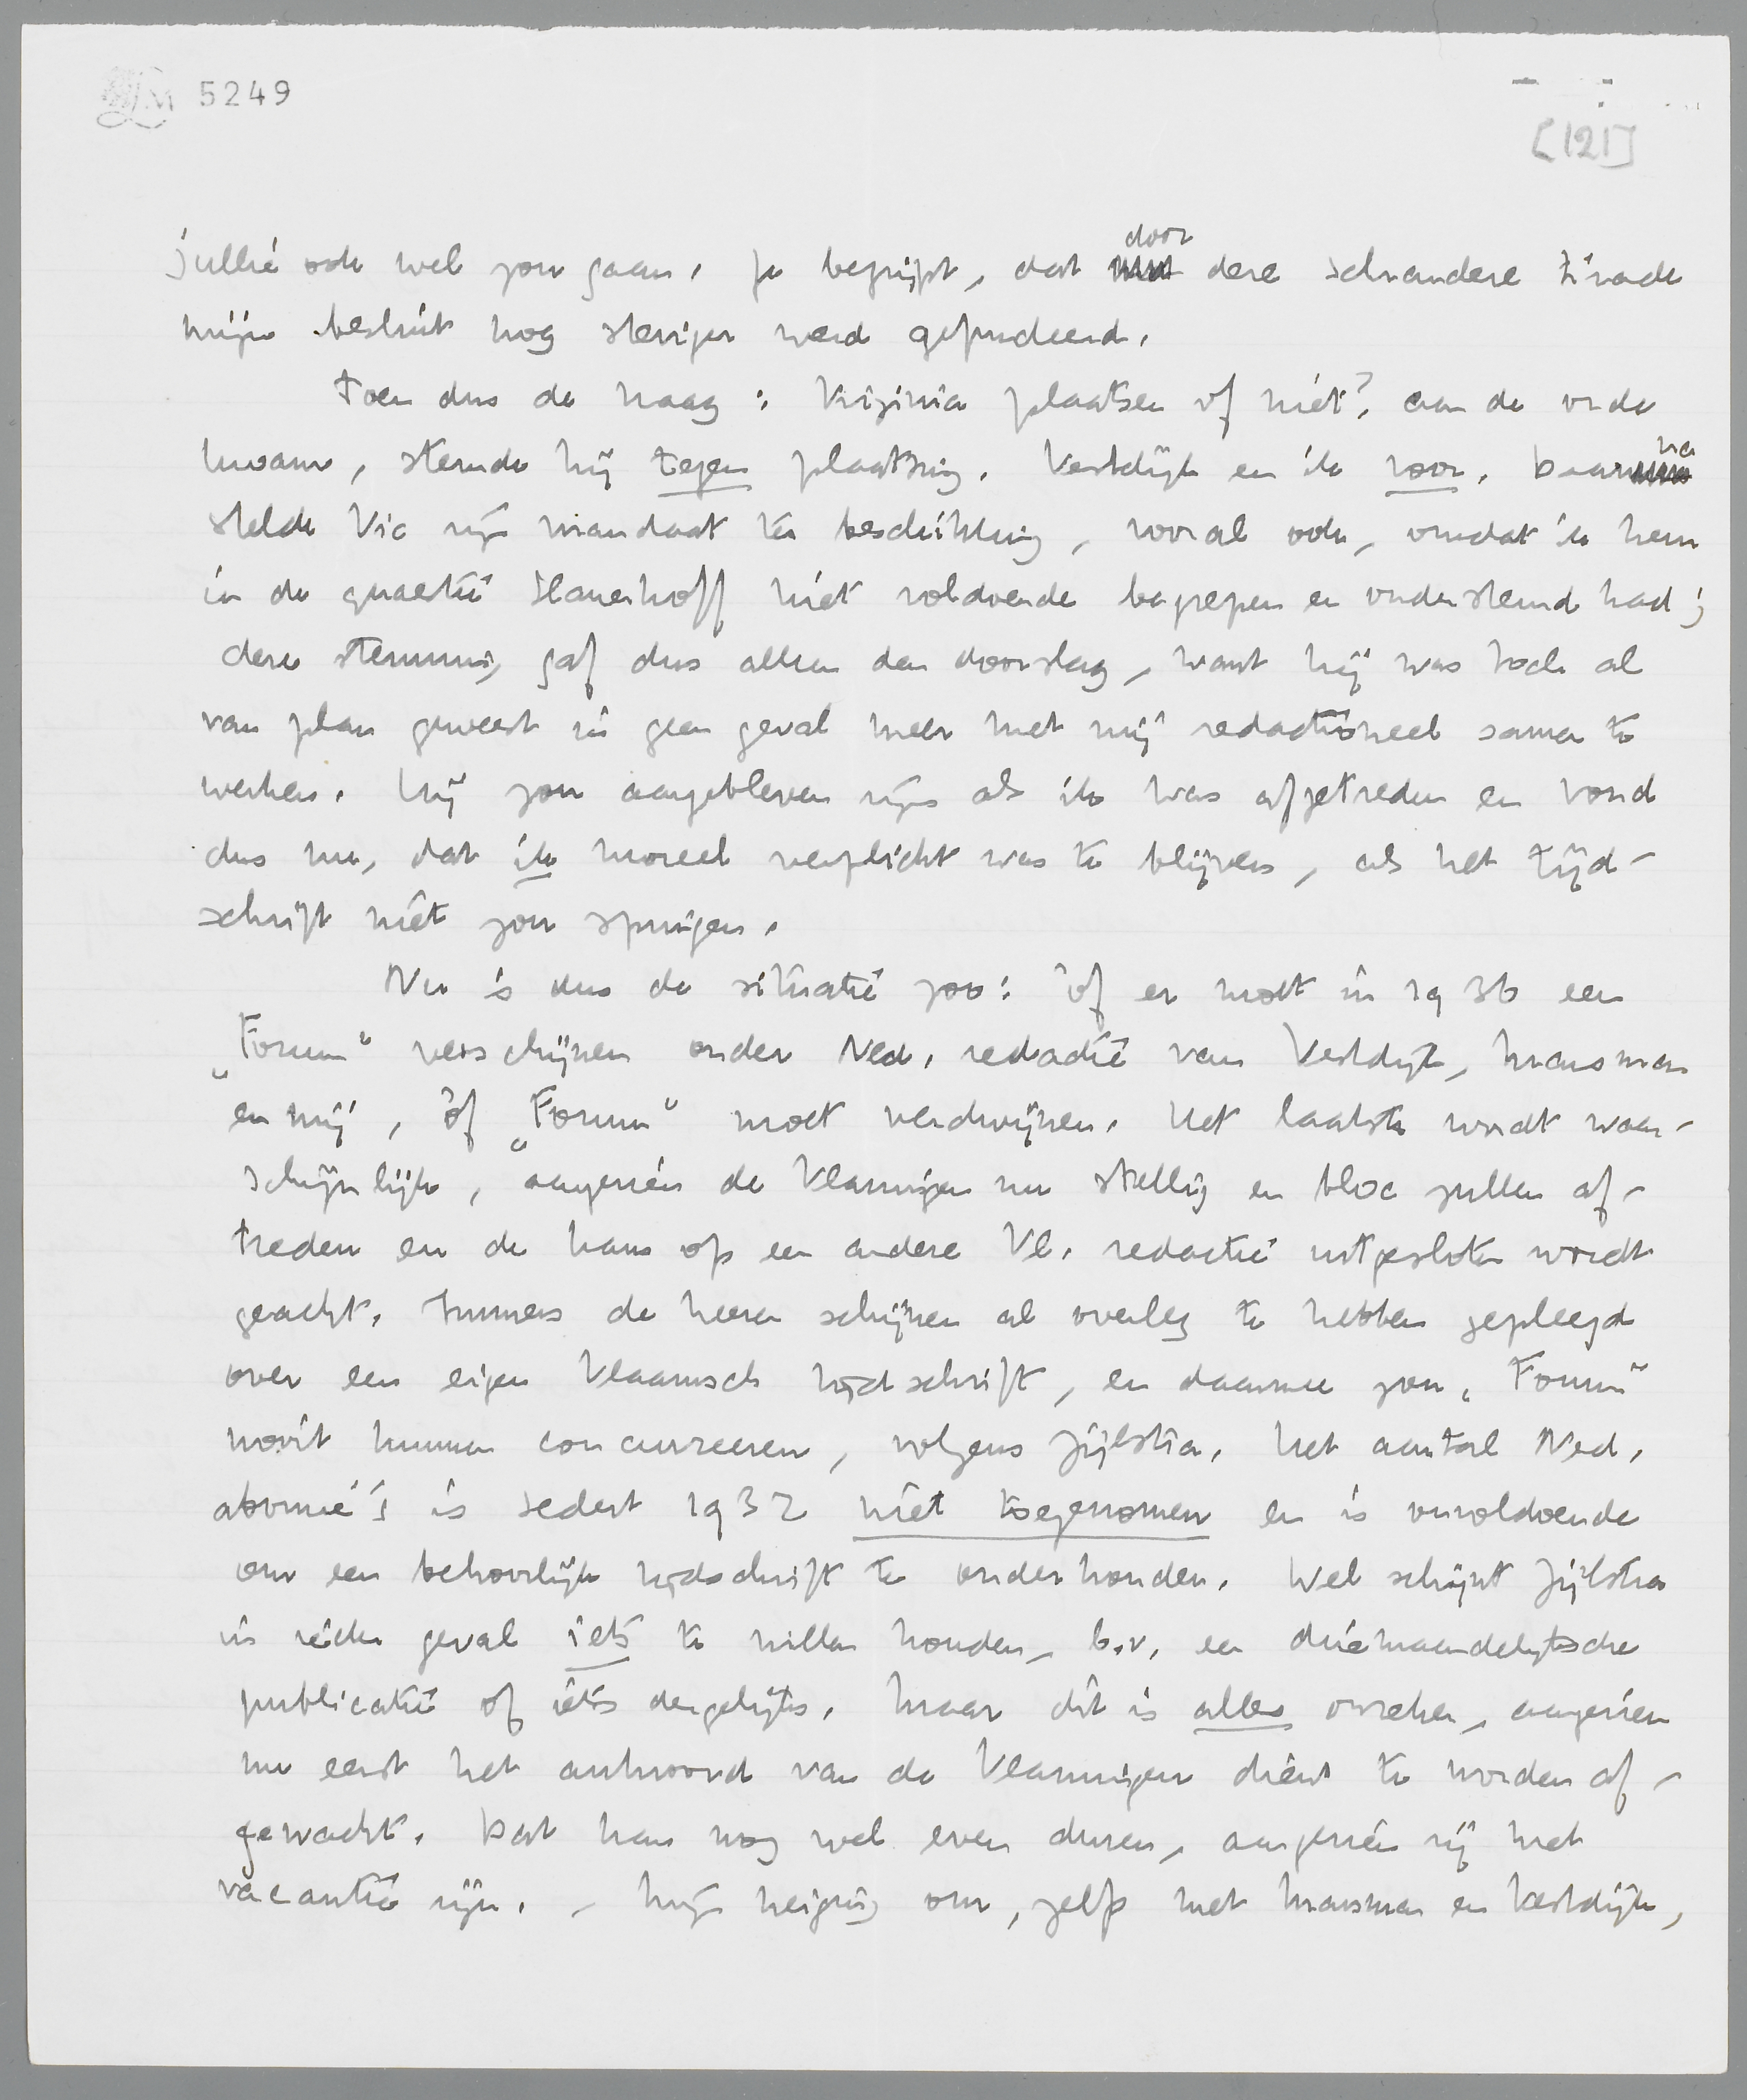 5249
[121]
jullie ook wel zou gaan. Je begrijpt, dat door deze schrandere tirade
mijn besluit nog steviger werd gefundeerd.
Toen dus de vraag: Virginia plaatsen of niet? aan de orde
kwam, stemde hij tegen plaatsing, Vestdijk en ik voor. Daarna
stelde Vic zijn mandaat ter beschikking, vooral ook, omdat ik hem
in de quaestie Slauerhoff niet voldoende begrepen en ondersteund had;
deze stemming gaf dus alleen den doorslag, want hij was toch al
van plan geweest in geen geval meer met mij redactioneel samen te
werken. Hij zou aangebleven zijn als ik was afgetreden en vond
dus nu, dat ik moreel verplicht was te blijven, als het tijd-
schrift niet zou springen.
Nu is dus de situatie zoo: òf er moet in 1936 een
„Forum” verschijnen onder Ned. redactie van Vestdijk, Marsman
en mij, òf „Forum” moet verdwijnen. Het laatste wordt waar-
schijnlijk, aangezien de Vlamingen nu stellig en bloc zullen af-
treden en de kans op een andere Vl. redactie uitgesloten wordt
geacht. Immers de heeren schijnen al overleg te hebben gepleegd
over een eigen Vlaamsch tijdschrift, en daarmee zou „Forum”
nooit kunnen concurreeren, volgens Zijlstra. Het aantal Ned.
abonné's is sedert 1932 niet toegenomen en is onvoldoende
om een behoorlijk tijdschrift te onderhouden. Wel schijnt Zijlstra
in ieder geval iets te willen houden, b.v. een driemaandelijksche
publicatie of iets dergelijks. Maar dit is alles onzeker, aangezien
nu eerst het antwoord van de Vlamingen dient te worden af-
gewacht. Dat kan nog wel even duren, aangezien zij met
vacantie zijn. - Mijn neiging om, zelfs met Marsman en Vestdijk,